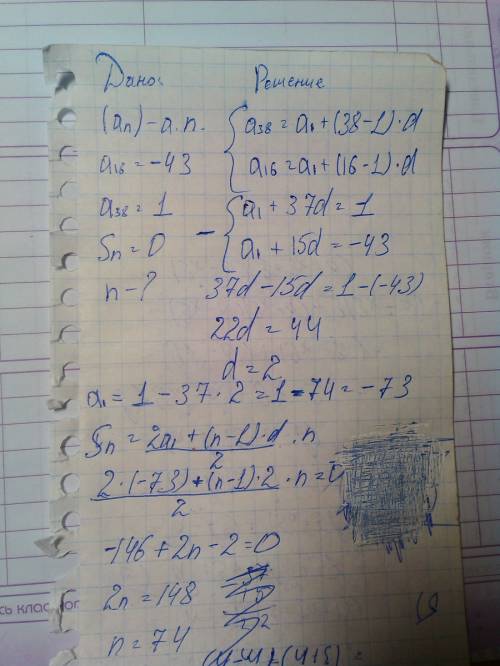 Дано: Решение
(aₙ) – а.п.
a₁₆ = –43
a₃₈ = 1
Sₙ = 0
n – ?
a₃₈ = a₁ + (38–1)·d
a₁₆ = a₁ + (16–1)·d
– a₁ + 37d = 1
a₁ + 15d = –43
37d – 15d = 1 – (–43)
22d = 44
d = 2
a₁ = 1 – 37·2 = 1 – 74 = –73
Sₙ = (2a₁ + (n–1)·d)/2 · n
(2·(–73) + (n–1)·2)/2 · n = 0
–146 + 2n – 2 = 0
2n = 148
n = 74